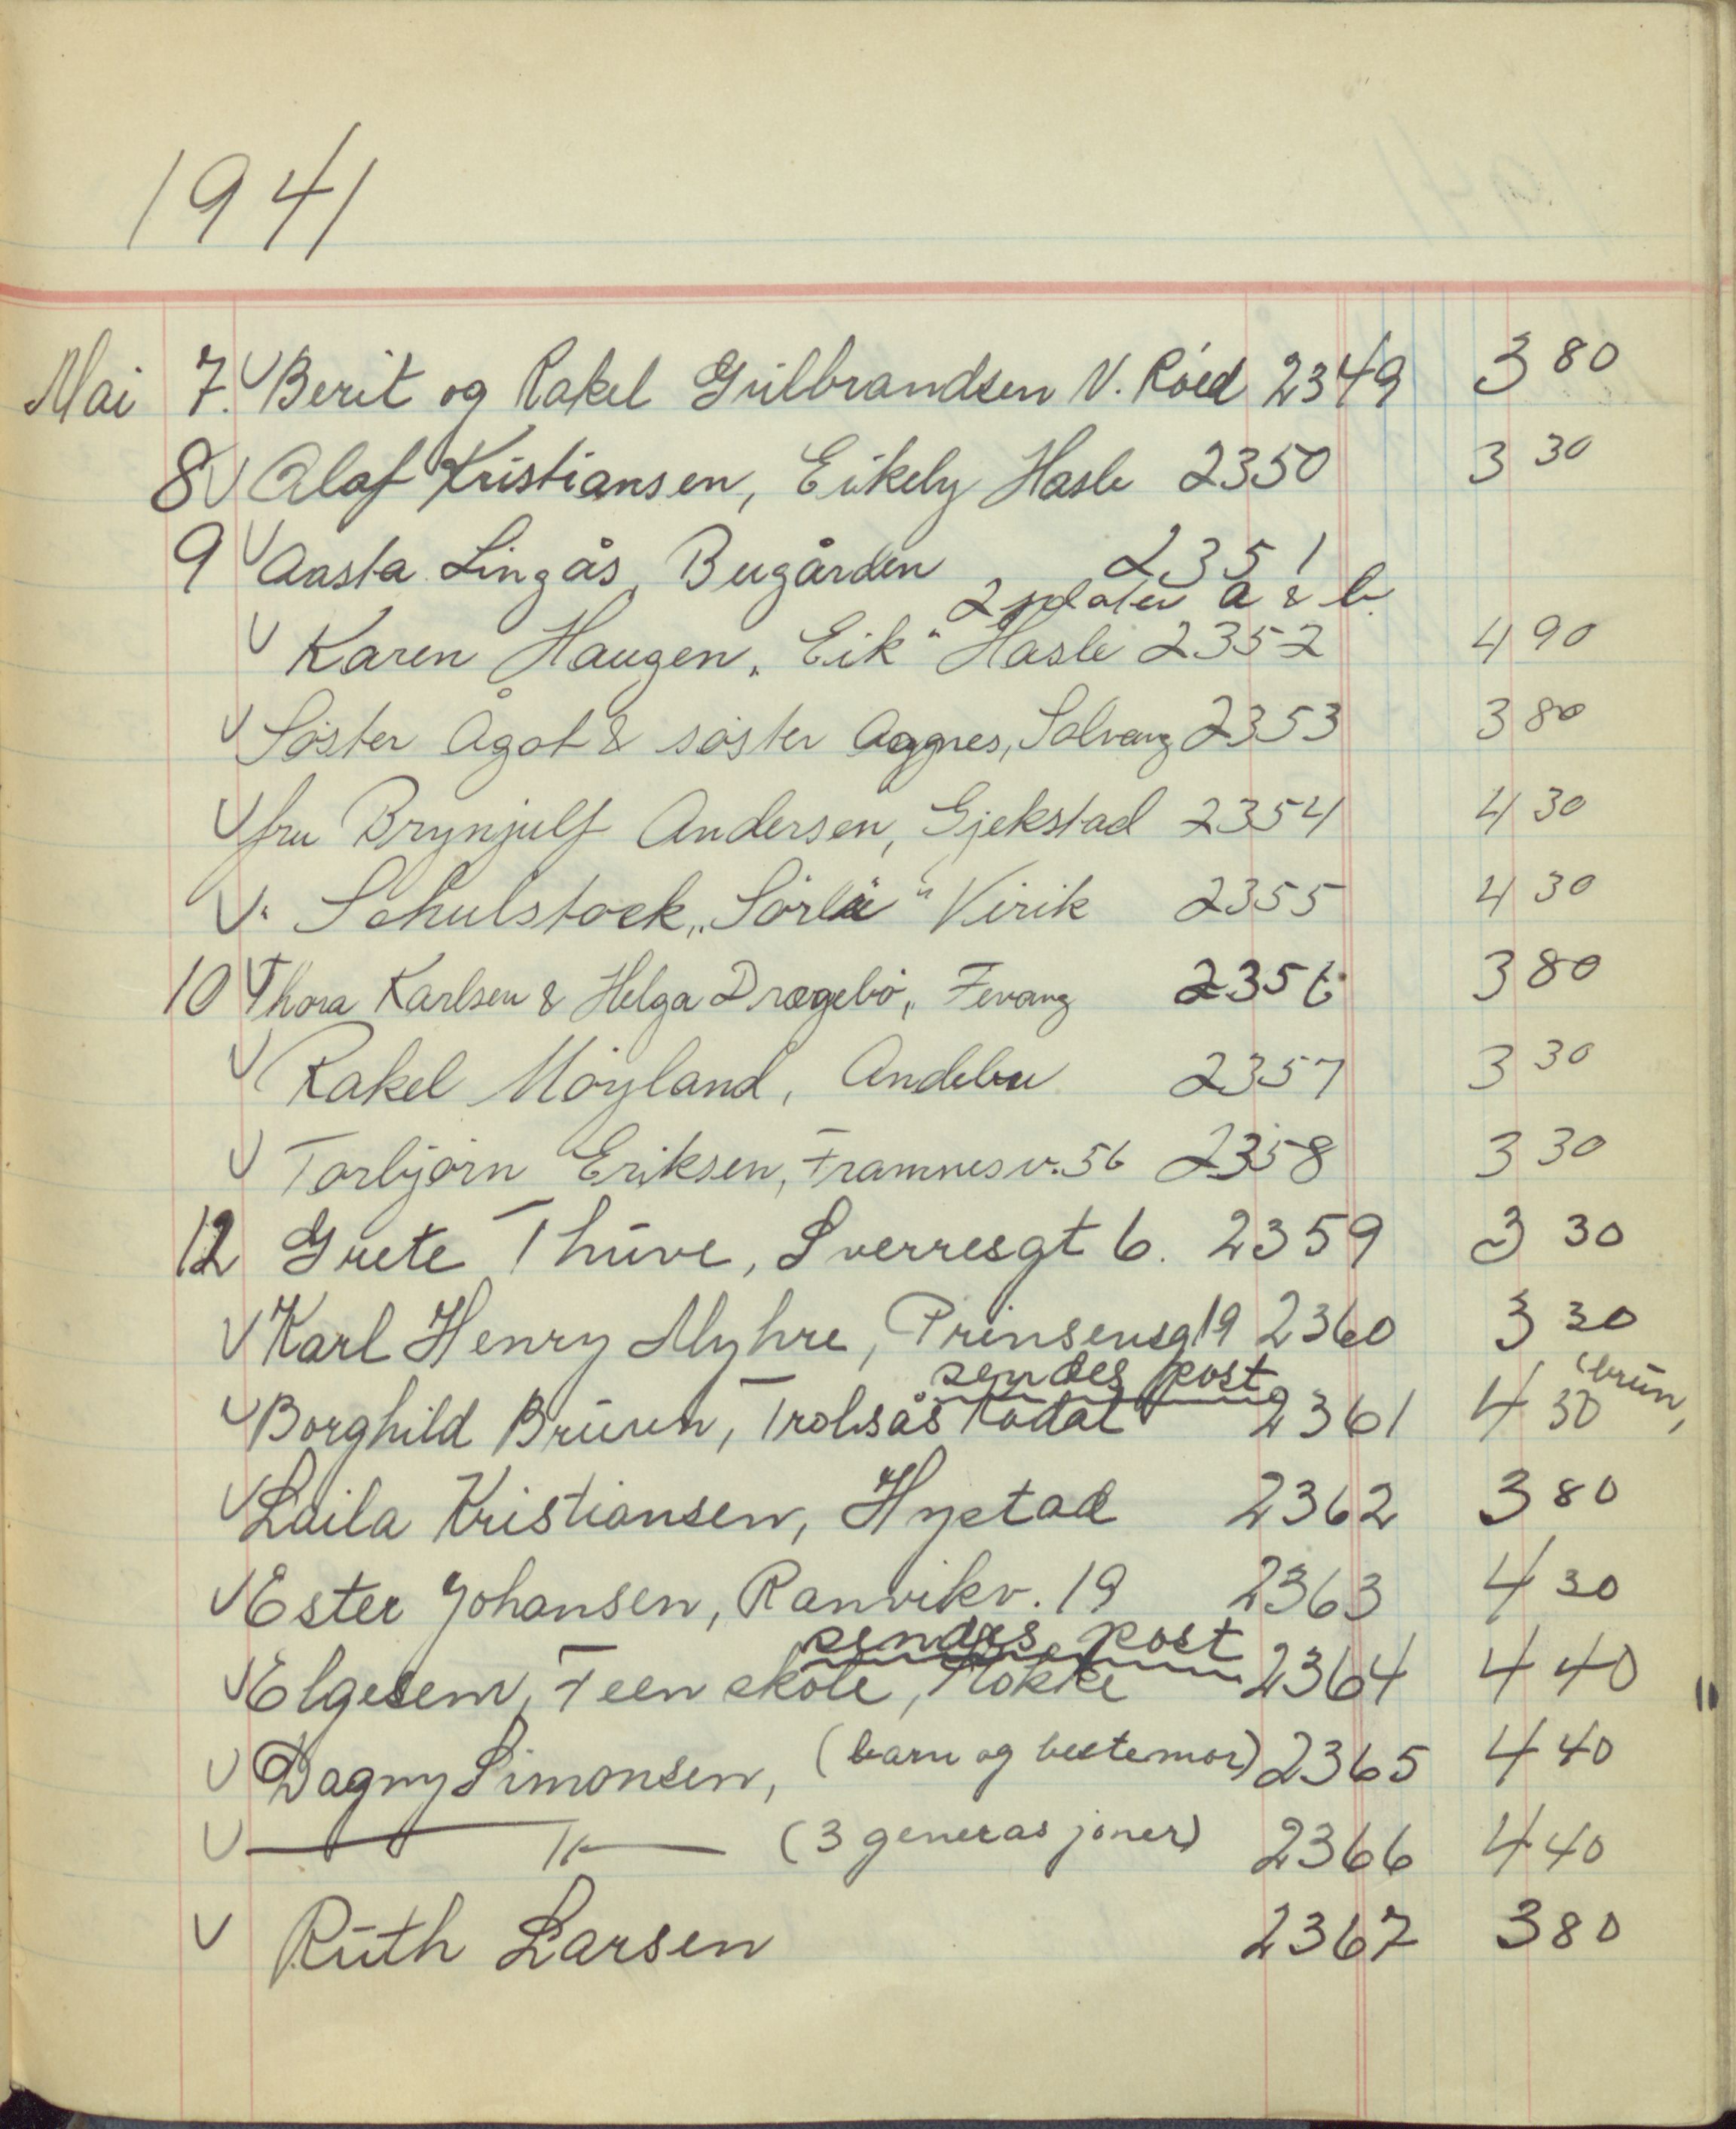 1941
Mai 7. V Berit og Rakel Gulbrandsen N. Röed 2349 3 80
8 V Olaf Kristiansen, Eikely Hasle 2350 3 30
9 V Aasta Lingås, Bugården 2351
2 plater a & b
V Karen Haugen, "Eik" Hasle 2352 4 90
V Söster Ågot & söster Aggnes, Solvang 2353 3 80
V fru Brynjulf Andersen, Gjekstad 2354 4 30
V " Schulstock, "Sörli" Virik 2355 4 30
10 V Thora Karlsen & Helga Drægebö, Fevang 2356 3 80
V Rakel Möyland, Andebu 2357 3 30
V Torbjörn Eriksen, Framnesv. 56 2358 3 30
12 Grete Thüve, Sverresgt 6. 2359 3 30
V Karl Henry Myhre, Prinsensg 19 2360 3 30
sendes post (brün,
V Borghild Brüun, Trolsås Kodal 2361 4 30
V Laila Kristiansen, Hystad 2362 3 80
V Ester Johansen, Ranvikv. 19 2363 4 30
sendes post
V Elgesem, Feen skole, 2364 4 40
V Dagny Simonsen, (barn og bestemor) 2365 4 40
V — " — (3 generasjoner) 2366 4 40
V Rüth Larsen 2367 3 80